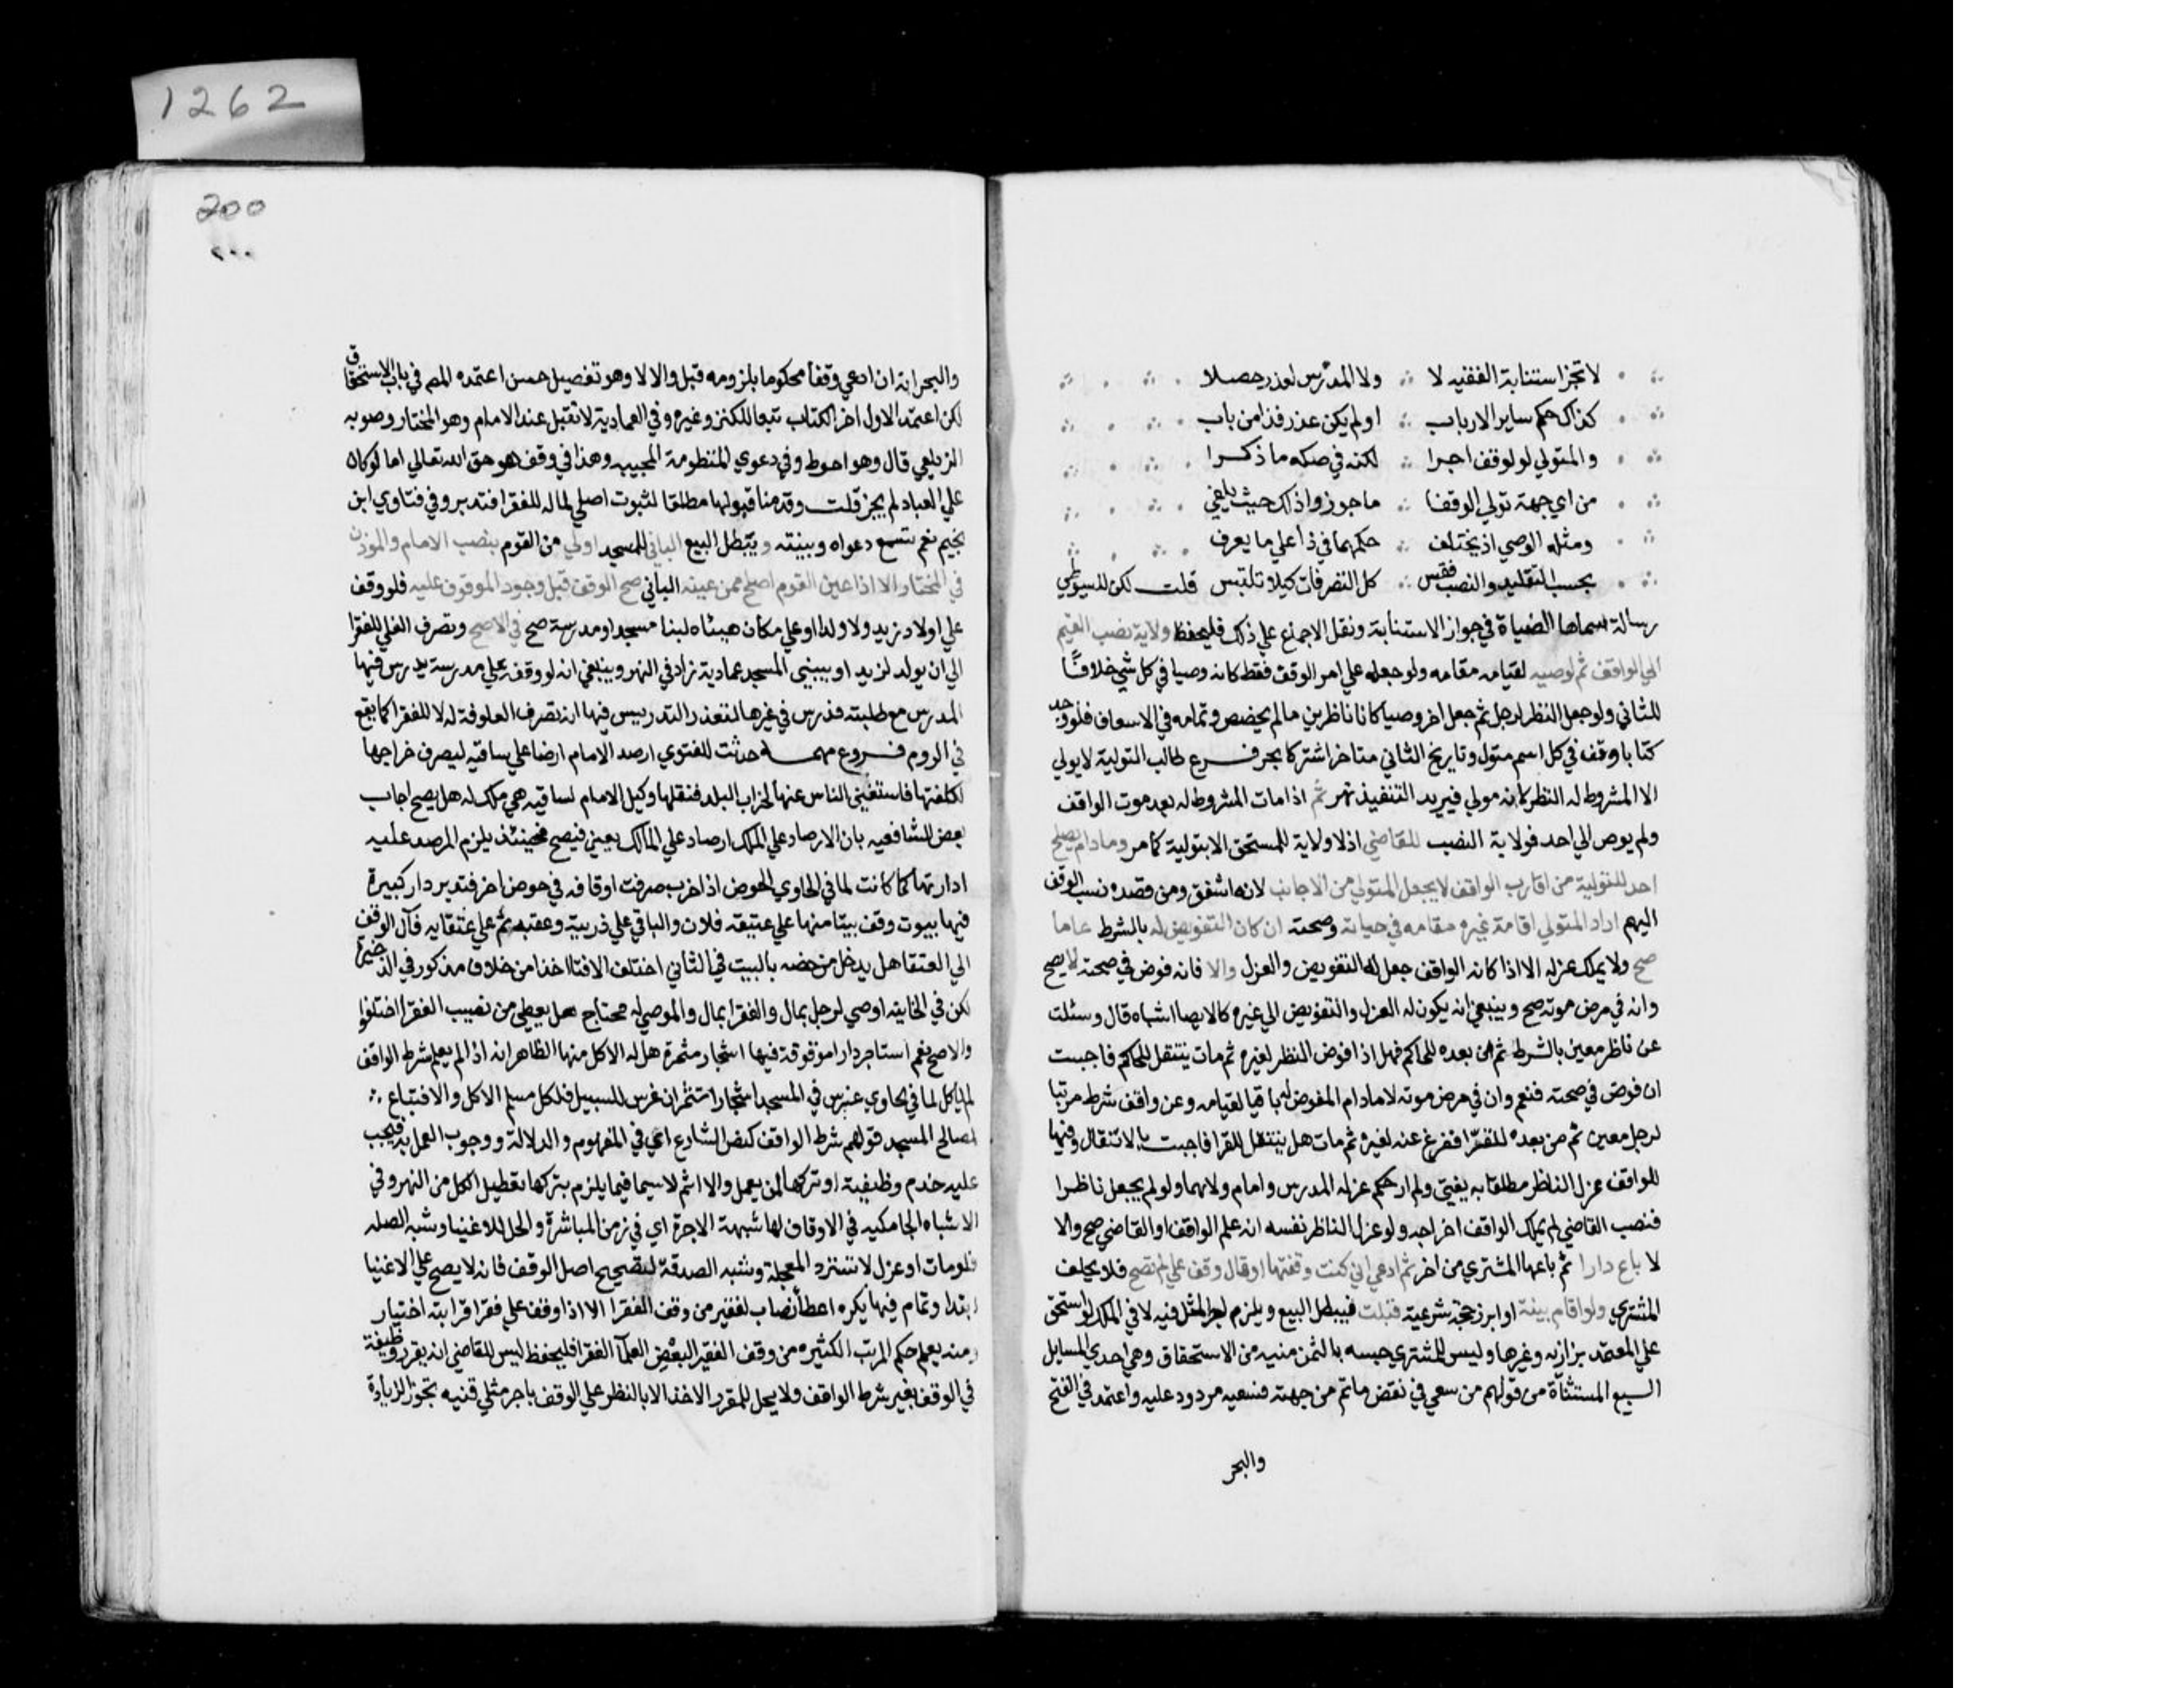 1262
لا تجز استنابة الفقيه لا ∴ ولا المدرس لعذر حصلا
كذاك حكم ساير الارباب ∴ او لم يكن عذر فذا من باب
والمتولي لو لوقف اجرا ∴ لكنه في صكه ما ذكرا
من اي جهة تولي الوقفا ∴ ما جوزوا ذلك حيث يلفي
ومثله الوصي اذ يختلف ∴ حكمهما في ذا علي ما يعرف
بحسب التقليد والنصب فقس ∴ كل التصرفات كيلا تلتبس قلت لكن للسيوطي
رسالة سماها الضيابة في جواز الاستنابة ونقل الاجماع علي ذلك فليحفظ ولاية نصب القيم
الي الواقف ثم لوصيه لقيامه مقامه ولو جعله علي امر الوقف فقط كان وصيا في كل شي خلافا
للثاني ولو جعل النظر لرجل ثم جعل اخر وصيا كانا ناظرين ما لم يخصص وتمامه في الاسعاف فلو وجد
كتابا وقف في كل اسم متول وتاريخ الثاني متاخر اشتركا بحر فرع طالب التولية لا يولي
الا المشروط له النظر لانه مولي فيريد التنفيذ نهر ثم اذا مات المشروط له بعد موت الواقف
ولم يوص الي احد فولاية النصب للقاضي اذ لا ولاية للمستحق الا بتولية كما مر وما دام يصلح
احد للتولية من اقارب الواقف لا يجعل المتولي من الاجانب لانه اشفق ومن قصده نسب الوقف
اليهم اراد المتولي اقامة غيره مقامه في حياته وصحته ان كان التفويض له بالشرط عاما
صح ولا يملك عزله الا اذا كان الواقف جعل له التفويض والعزل والا فان فوض في صحته لا يصح
وان في مرض موته صح وينبغي ان يكون له العزل والتفويض الي غيره كالايصا اشباه قال وسئلت
عن ناظر معين بالشرط ثم من بعده للحاكم فهل اذا فوض النظر لغيره ثم مات ينتقل للحاكم فاجبت
ان فوض في صحته فنعم وان في مرض موته لا ما دام المفوض له باقيا لقيامه وعن واقف شرط مرتبا
لرجل معين ثم من بعده للفقرا ففرغ عنه لغيره ثم مات هل ينتقل للفقرا فاجبت بالانتقال وفيها
للواقف عزل الناظر مطلقا به يفتي ولم ار حكم عزله المدرس وامام ولاهما ولو لم يجعل ناظرا
فنصب القاضي لم يملك الواقف اخراجه ولو عزل الناظر نفسه ان علم الواقف او القاضي صح والا
لا باع دارا ثم باعها المشتري من اخر ثم ادعي اني كنت وقفتها او قال وقف علي لم تصح فلا يحلف
المشتري ولو اقام بينة او ابرز حجة شرعية قبلت فيبطل البيع ويلزم اجر المثل فيه لا في الملك لو استحق
علي المعتمد بزازيه وغيرها وليس للمشتري حبسه بالثمن منيه من الاستحقاق وهي احدي المسايل
السبع المستثناة من قولهم من سعي في نقض ما تم من جهته فسعيه مردود عليه واعتمد في الفتح
والبحر
200
٢٠٠
والبحر انه ان ادعي وقفا محكوما بلزومه قبل والا لا وهو تفصيل حسن اعتمده المص في باب الاستحقاق
لكن اعتمد الاول اخر الكتاب تبعا للكنز وغيره وفي العمادية لا تقبل عند الامام وهو المختار وصوبه
الزيلعي قال وهو احوط وفي دعوي المنظومة المحبيه وهذا في وقف هو حق الله تعالي اما لو كان
علي العباد لم يجز قلت وقدمنا قبولها مطلقا لثبوت اصلي لماله للفقرا فتدبر وفي فتاوي ابن
نجيم نعم تسمع دعواه وبينته ويبطل البيع الباني للمسجد اولي من القوم بنصب الامام والموذن
في المختار الا اذا عين القوم اصلح ممن عينه الباني صح الوقف قبل وجود الموقوف عليه فلو وقف
علي اولاد زيد ولا ولد له او علي مكان هيئاه لبنا مسجد او مدرسة صح في الاصح وتصرف الغلي للفقرا
الي ان يولد لزيد او يبني المسجد عمادية زاد في النهر وينبغي انه لو وقفه علي مدرسة يدرس فيها
المدرس مع طلبته فدرس في غيرها لتعذر التدريس فيها ان تصرف العلوفة له لا للفقرا كما يقع
في الروم فروع مهمه حدثت للفتوي ارصد الامام ارضا علي ساقيه ليصرف خراجها
لكلفتها فاستغني الناس عنها لخراب البلد فنقلها وكيل الامام لساقيه هي ملك له هل يصح اجاب
بعض الشافعيه بان الارصاد علي الملك ارصاد علي المالك يعني فيصح فحينئذ يلزم المرصد عليه
ادارتها كما كانت لما في الحاوي الحوض اذا خرب صرفت اوقافه في حوض اخر فتدبر دار كبيرة
فيها بيوت وقف بيتا منها علي عتيقه فلان والباقي علي ذريته وعقبه ثم علي عتقايه فآل الوقف
الي العتقا هل يدخل من خصه بالبيت في الثاني اختلف الافتا اخذا من خلاف مذكور في الذخيرة
لكن في الخانية اوصي لرجل بمال وللفقرا بمال والموصي له محتاج هل يعطي من نصيب الفقرا اختلفوا
والاصح نعم استاجر دارا موقوفة فيها اشجار مثمرة هل له الاكل منها الظاهر انه اذا لم يعلم شرط الواقف
لم ياكل لما في الحاوي غرس في المسجد اشجارا تثمر ان غرس للسبيل فلكل مسلم الاكل والا فتباع ∴
لمصالح المسجد قولهم شرط الواقف كنص الشارع اي في المفهوم والدلالة ووجوب العمل به فيجب
عليه خدمة وظيفته او تركها لمن يعمل والا اثم لا سيما فيما يلزم بتركها تعطيل الكل من النهر وفي
الاشباه الجامكيه في الاوقاف لها شبهة الاجرة اي في زمن المباشرة والحل للاغنيا وشبه الصله
فلو مات او عزل لا تسترد المعجلة وشبه الصدقة لتصحيح اصل الوقف فانه لا يصح علي الاغنيا
ابتدا وتمام فيها يكره اعطا نصاب لفقير من وقف الفقرا الا اذا وقف علي فقرا قرابته اختيار
ومنه يعلم حكم المرتب الكثيره من وقف الفقير البعض العلمآ الفقرا فليحفظ ليس للقاضي ان يقرر وظيفة
في الوقف بغير شرط الواقف ولا يحل للمقرر الاخذ الا بالنظر علي الوقف باجر مثلي قنيه تجوز الزيادة